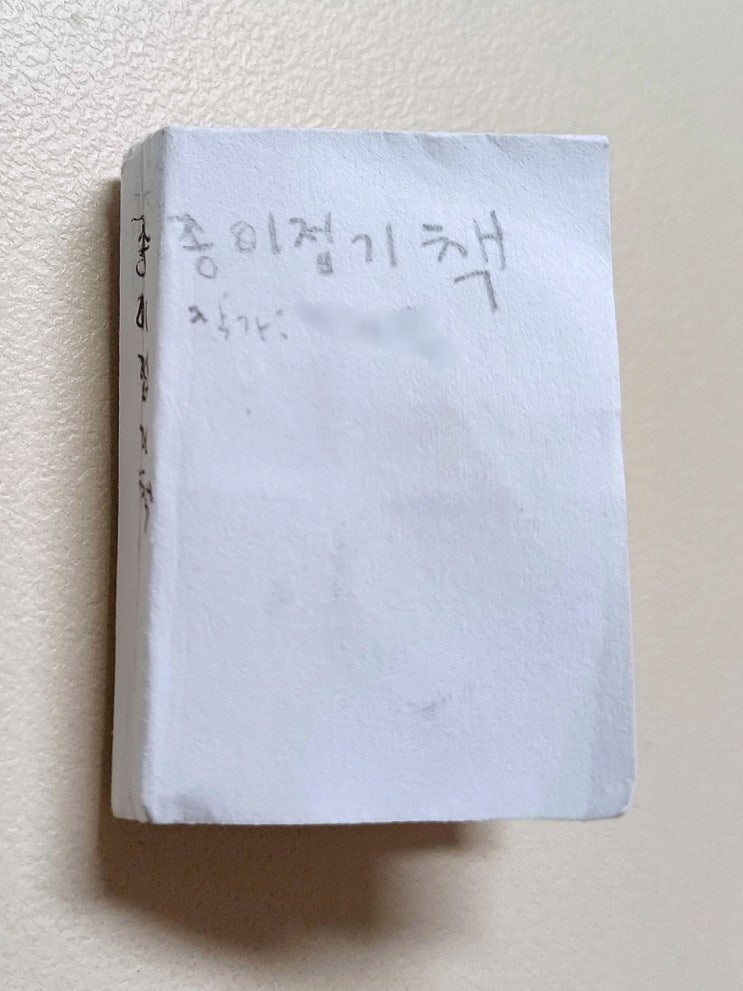 종이접기책
작가:
종이접기책